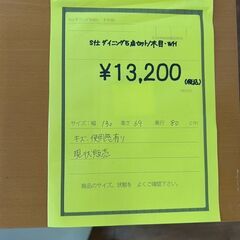 S社 ダイニング5点セット/木目・WH
¥13,200
(税込)
サイズ:幅 130 高さ 69 奥行 80 cm
キズ、使用感有り
現状販売
商品のサイズ、状態を よくご確認下さい。